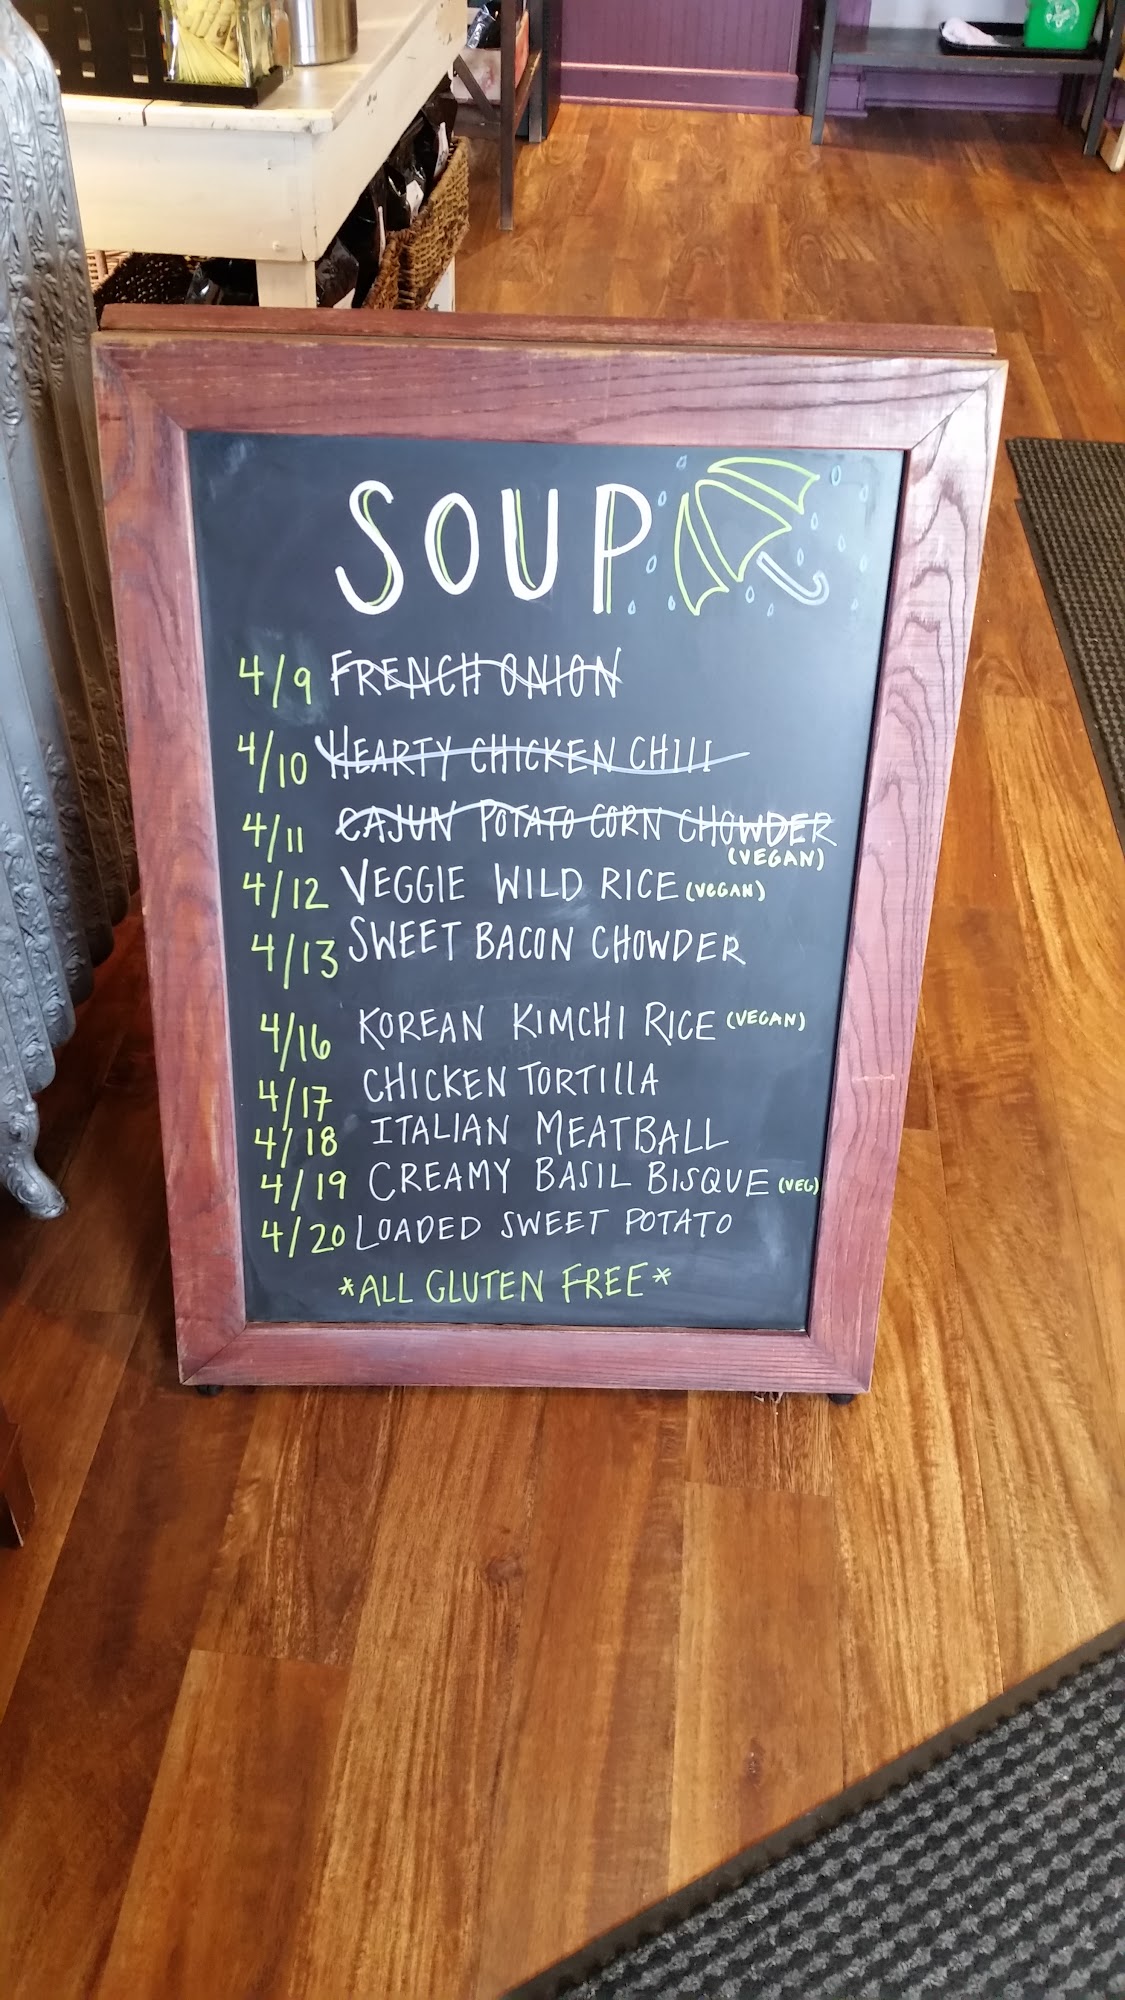 SOUP
4/9 FRENCH ONION
4/10 HEARTY CHICKEN CHILI
4/11 CAJUN POTATO CORN CHOWDER
(VEGAN)
4/12 VEGGIE WILD RICE (VEGAN)
4/13 SWEET BACON CHOWDER
4/16 KOREAN KIMCHI RICE (VEGAN)
4/17 CHICKEN TORTILLA
4/18 ITALIAN MEATBALL
4/19 CREAMY BASIL BISQUE (VEG)
4/20 LOADED SWEET POTATO
*ALL GLUTEN FREE*